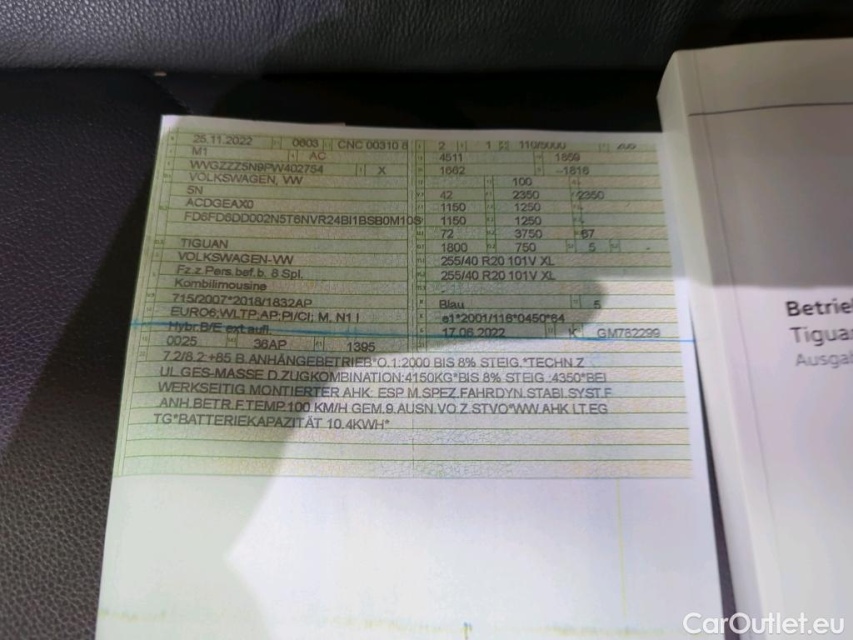 25.11.2022 0603 CNC 00310 6 2 1
M1 AC 4511 1859
WVGZZZ5N9PW402754 X 1662 -1816
VOLKSWAGEN, VW 100
5N 42 2350 2350
ACDGEAX0 1150 1250
FD6FD6DD002N5T6NVR24BI1BSB0M10S 1150 1250
72 3750 67
TIGUAN 1800 750 5
VOLKSWAGEN-VW 255/40 R20 101V XL
Fz.z.Pers.bef.b. 8 Spl. 255/40 R20 101V XL
Kombilimousine
715/2007*2018/1832AP Blau 5
EURO6;WLTP;AP;PI/CI; M, N1 I e1*2001/116*0450*64
Hybr.B/E ext.aufl. 17.06.2022 K GM782299
0025 36AP 1395
7.2/8.2:+85 B.ANHÄNGEBETRIEB*O.1:2000 BIS 8% STEIG.*TECHN.Z
UL.GES-MASSE D.ZUGKOMBINATION:4150KG*BIS 8% STEIG.:4350*BEI
WERKSEITIG MONTIERTER AHK: ESP M.SPEZ.FAHRDYN.STABI.SYST.F
.ANH.BETR.F.TEMP.100 KM/H GEM.9.AUSN.VO.Z.STVO*WW.AHK LT.EG
TG*BATTERIEKAPAZITÄT 10.4KWH*
Betrie
Tiguan
Ausgab
CarOutlet.eu